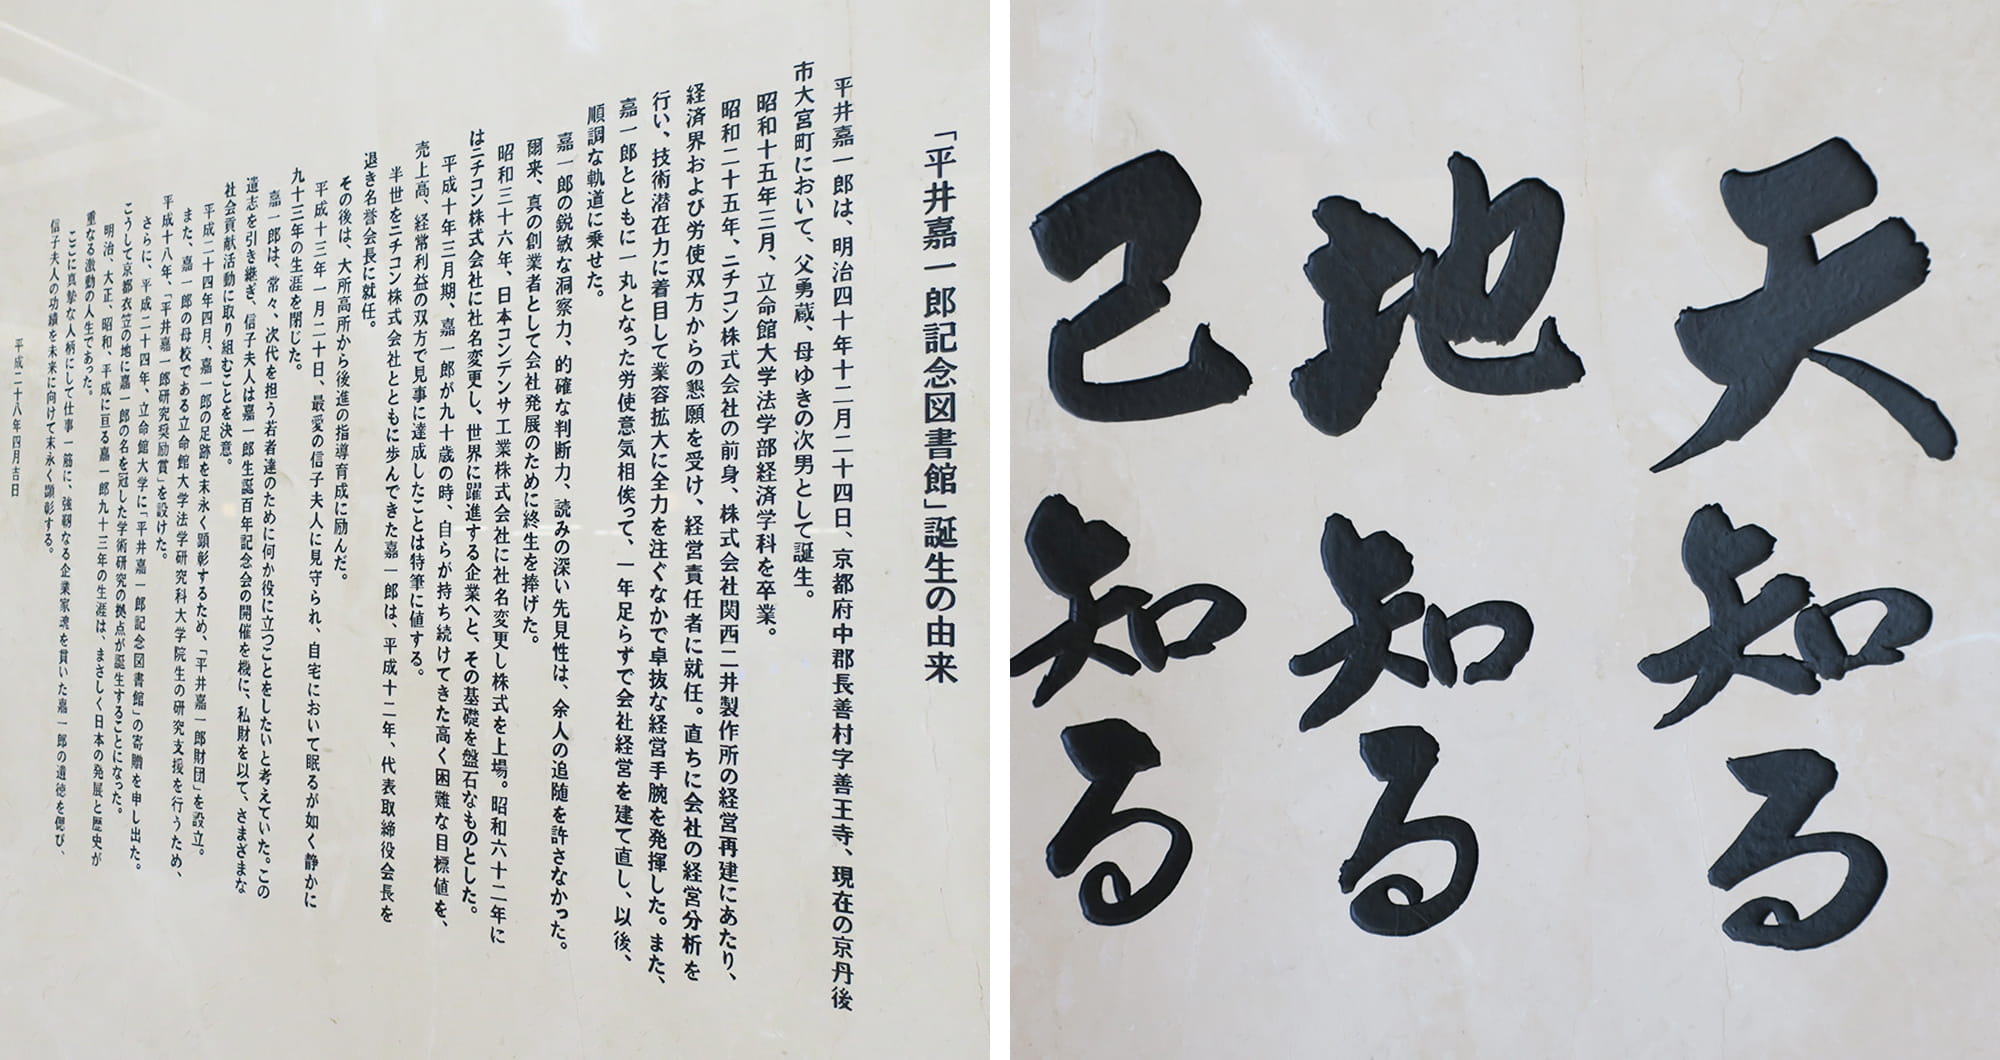 「平井嘉一郎記念図書館」誕生の由来
平井嘉一郎は、明治四十年十二月二十四日、京都府中郡長善村字善王寺、現在の京丹後
市大宮町において、父勇蔵、母ゆきの次男として誕生。
昭和十五年三月、立命館大学法学部経済学科を卒業。
昭和二十五年、ニチコン株式会社の前身、株式会社関西二井製作所の経営再建にあたり、
経済界および労使双方からの懇願を受け、経営責任者に就任。直ちに会社の経営分析を
行い、技術潜在力に着目して業容拡大に全力を注ぐなかで卓抜な経営手腕を発揮した。また、
嘉一郎とともに一丸となった労使意気相俟って、一年足らずで会社経営を建て直し、以後、
順調な軌道に乗せた。
嘉一郎の鋭敏な洞察力、的確な判断力、読みの深い先見性は、余人の追随を許さなかった。
爾来、真の創業者として会社発展のために終生を捧げた。
昭和三十六年、日本コンデンサ工業株式会社に社名変更し株式を上場。昭和六十二年に
はニチコン株式会社に社名変更し、世界に躍進する企業へと、その基礎を盤石なものとした。
平成十年三月期、嘉一郎が九十歳の時、自らが持ち続けてきた高く困難な目標値を、
売上高、経常利益の双方で見事に達成したことは特筆に値する。
半世をニチコン株式会社とともに歩んできた嘉一郎は、平成十二年、代表取締役会長を
退き名誉会長に就任。
その後は、大所高所から後進の指導育成に励んだ。
平成十三年一月二十日、最愛の信子夫人に見守られ、自宅において眠るが如く静かに
九十三年の生涯を閉じた。
嘉一郎は、常々、次代を担う若者達のために何か役に立つことをしたいと考えていた。この
遺志を引き継ぎ、信子夫人は嘉一郎生誕百年記念会の開催を機に、私財を以て、さまざまな
社会貢献活動に取り組むことを決意。
平成二十四年四月、嘉一郎の足跡を末永く顕彰するため、「平井嘉一郎財団」を設立。
また、嘉一郎の母校である立命館大学法学研究科大学院生の研究支援を行うため、
平成十八年、「平井嘉一郎研究奨励賞」を設けた。
さらに、平成二十四年、立命館大学に「平井嘉一郎記念図書館」の寄贈を申し出た。
こうして京都衣笠の地に嘉一郎の名を冠した学術研究の拠点が誕生することになった。
明治、大正、昭和、平成に亘る嘉一郎九十三年の生涯は、まさしく日本の発展と歴史が
重なる激動の人生であった。
ここに真摯な人柄にして仕事一筋に、強靭なる企業家魂を貫いた嘉一郎の遺徳を偲び、
信子夫人の功績を未来に向けて末永く顕彰する。
平成二十八年四月吉日
天知る
地知る
己知る